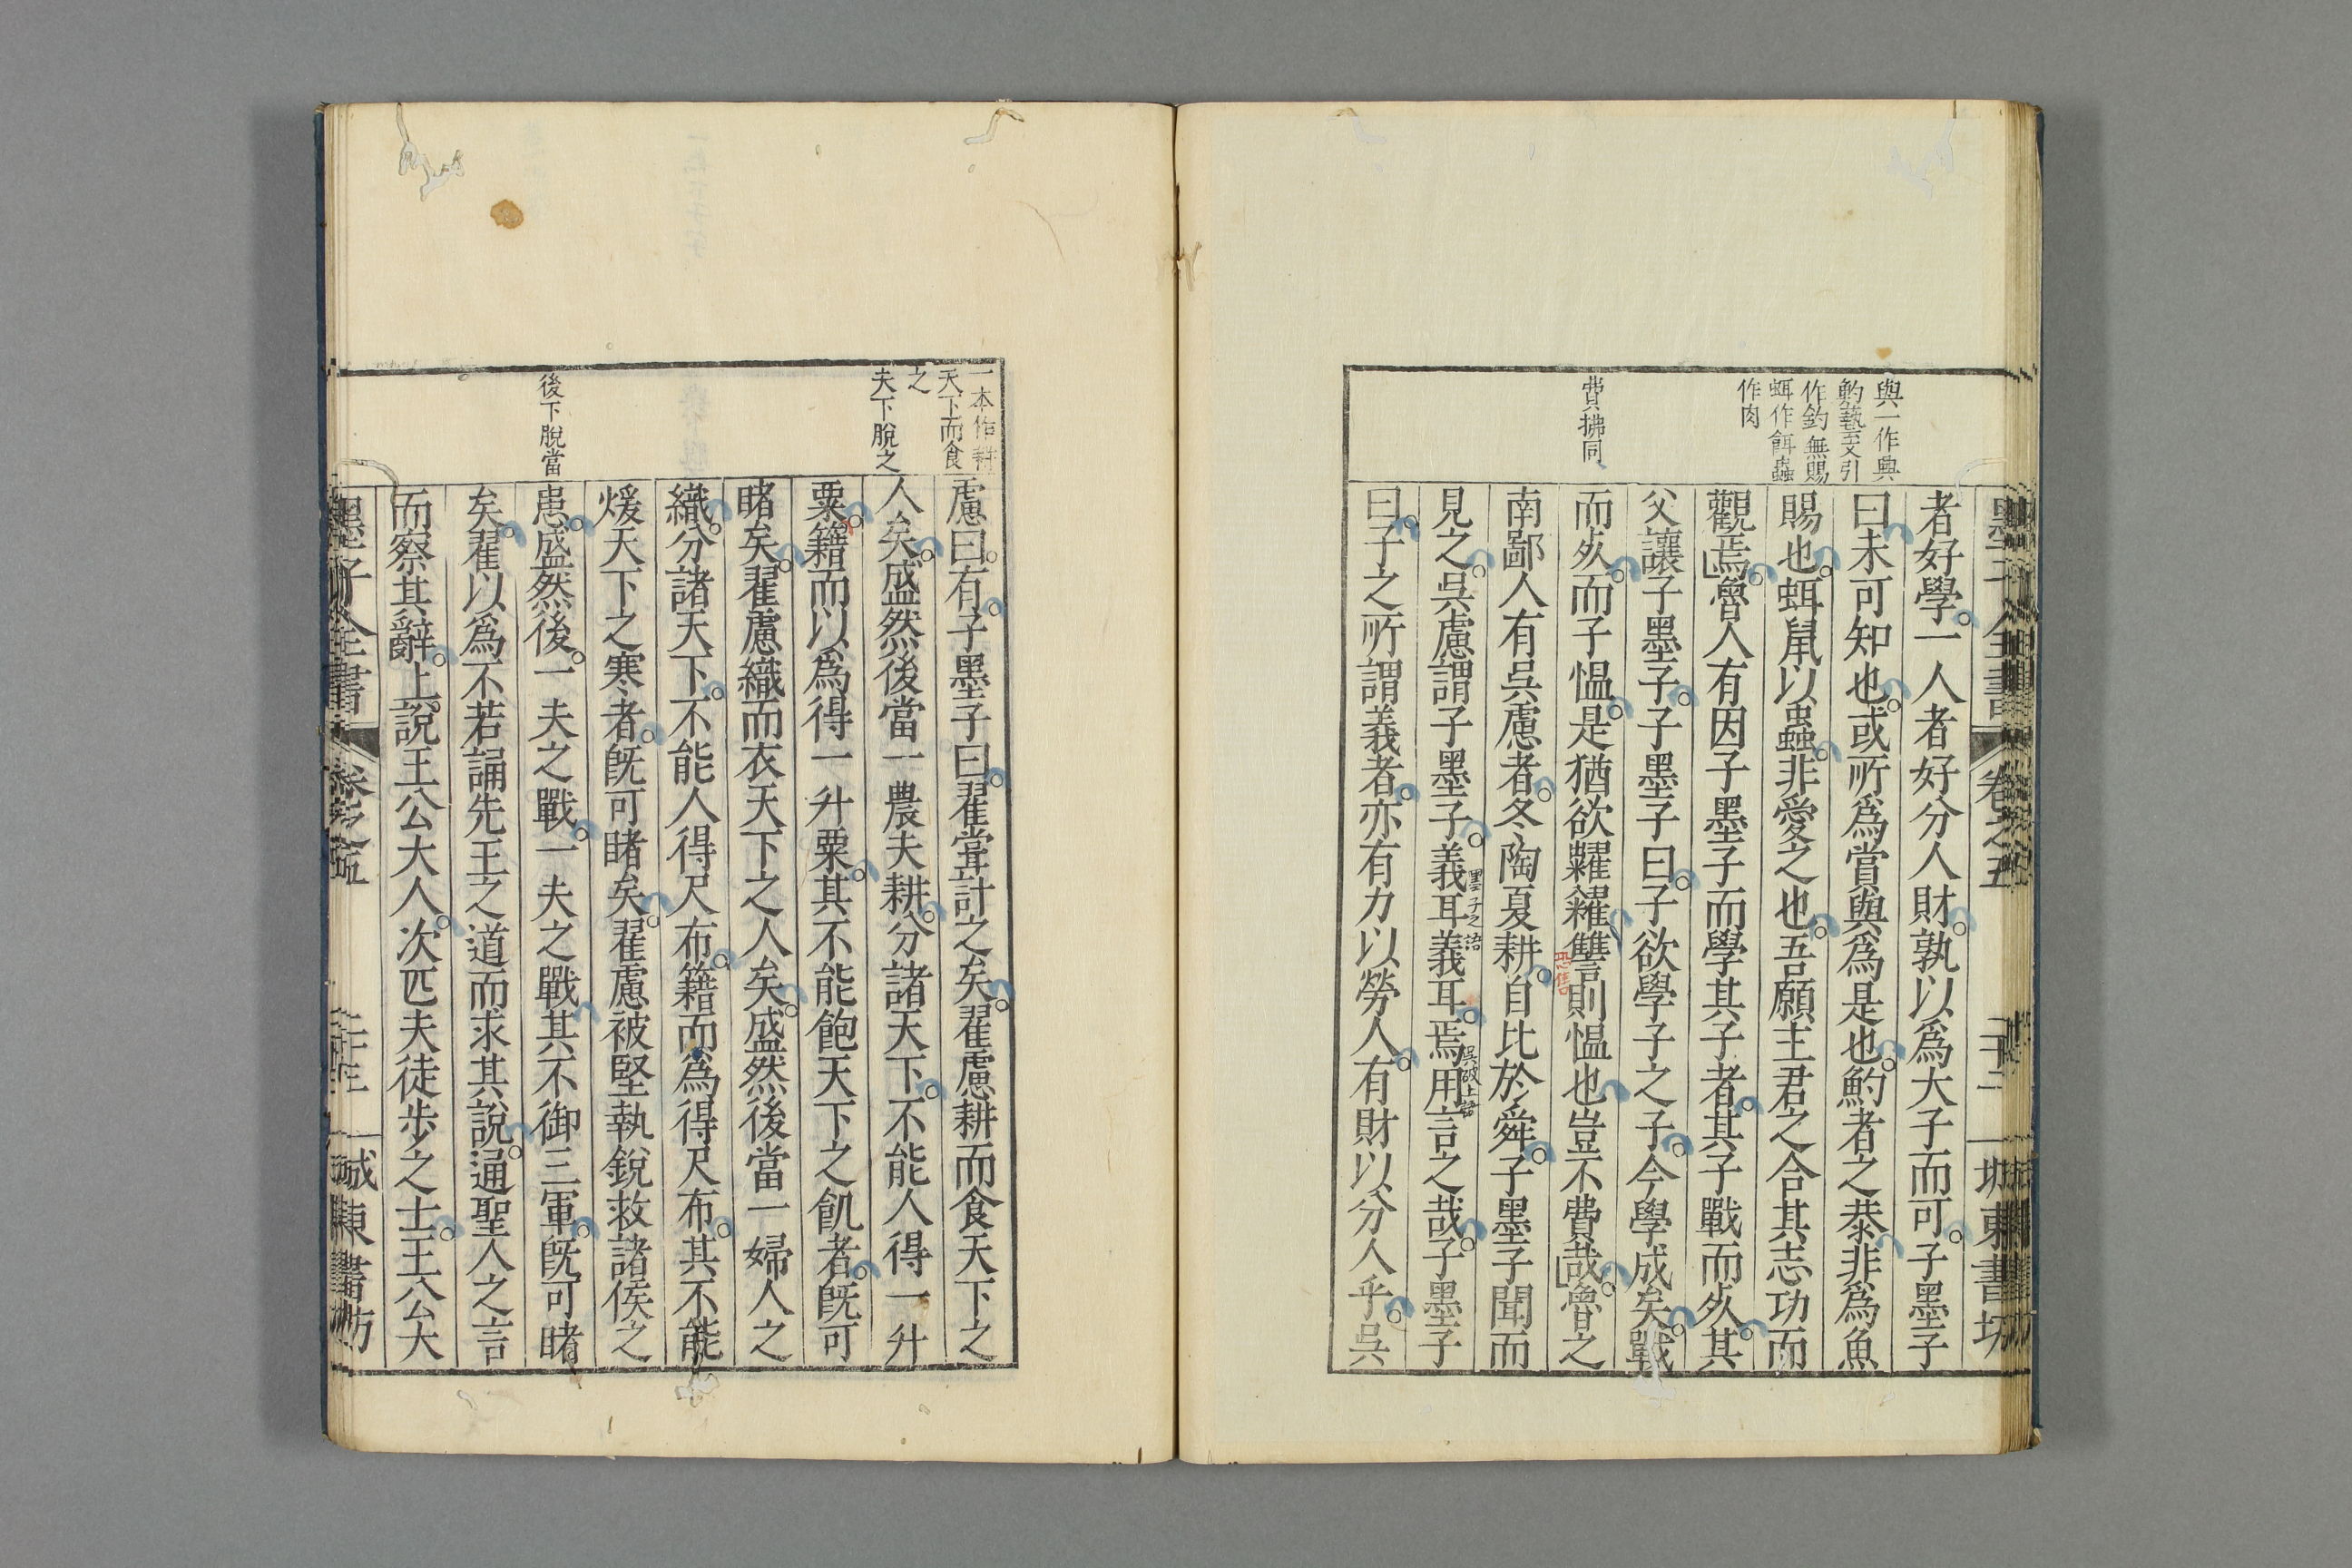 墨子全書 卷之五 堂東書坊
與一作與
魡藝文引
作釣 無賜
蚏作餌蟲
作肉
費拂同
者好學一人者好分人財孰以爲大子而可子墨子
曰未可知也或所爲賞與爲是也魡者之恭非爲魚
賜也蚏鼠以蟲非愛之也吾願主君之合其志功而
觀焉魯人有因子墨子而學其子者其子戰而死其
父讓子墨子子墨子曰子欲學子之子今學成矣戰
而死而子慍是猶欲糶糴讐則慍也豈不費哉魯之
恐售
南鄙人有吳慮者冬陶夏耕自比於舜子墨子聞而
見之吳慮謂子墨子義耳義耳焉用言之哉子墨子
墨子之語
吳破上語
曰子之所謂義者亦有力以勞人有財以分人乎吳
一本作耕
天下而食
之
夫下脫之
後下脫當
慮曰有子墨子曰翟嘗計之矣翟慮耕而食天下之
人矣盛然後當一農夫耕分諸天下不能人得一升
粟籍而以爲得一升粟其不能飽天下之飢者旣可
睹矣翟慮織而衣天下之人矣盛然後當一婦人之
織分諸天下不能人得尺布籍而爲得尺布其不能
煖天下之寒者旣可睹矣翟慮被堅執銳救諸侯之
患盛然後一夫之戰一夫之戰其不御三軍旣可睹
矣翟以爲不若誦先王之道而求其說通聖人之言
而察其辭上說王公大人次匹夫徒步之士王公大
墨子全書 卷之五